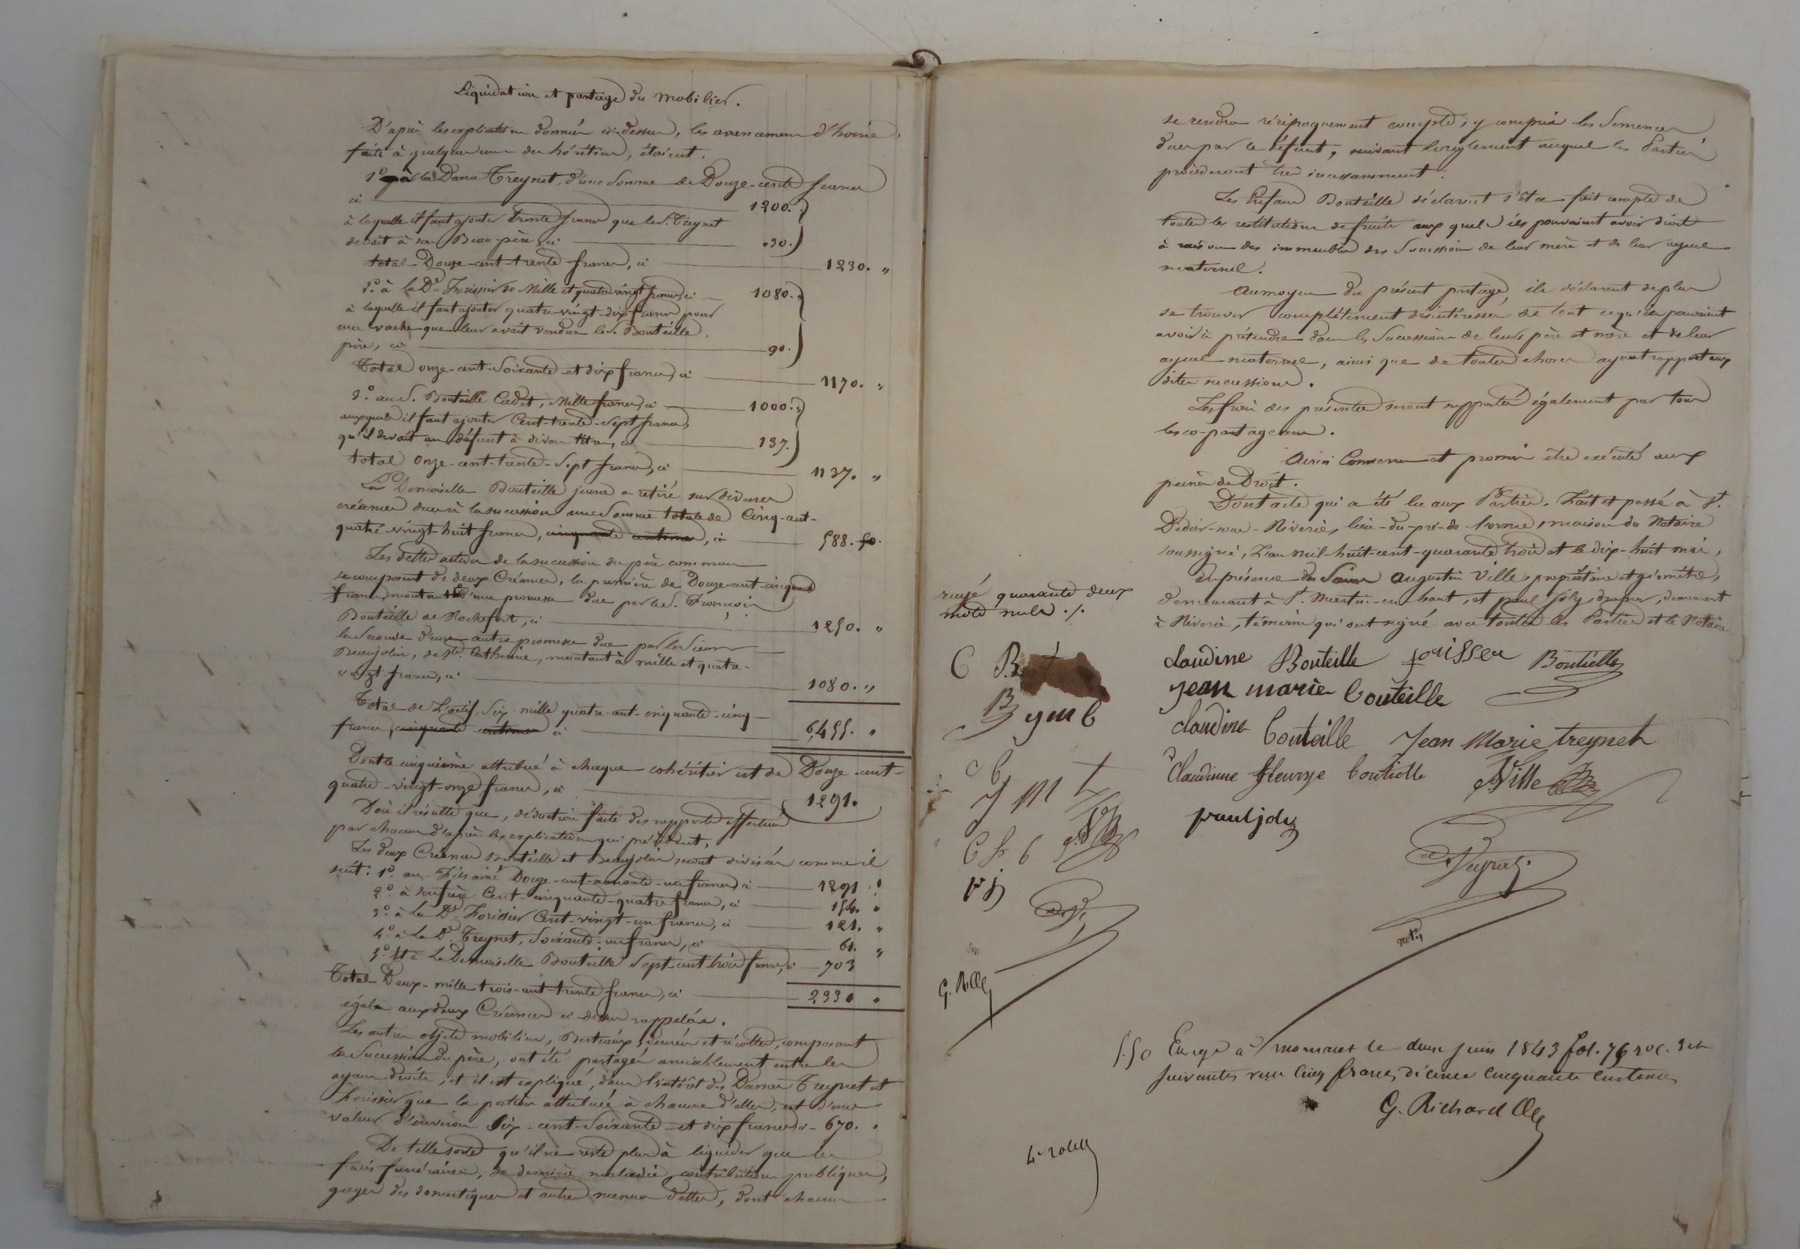 Liquidation et partage du Mobilier.
D'après les explications données ci-dessus, les avancemens d'hoirie
faits à quelques uns des héritiers, étaient,
1º à la Dame Treynet, d'une somme de Douze-cents francs
ci 1200.
à laquelle il faut ajouter trente francs que le S. Treynet
devait à son Beau père, ci 30.
total Douze-cent-trente francs, ci 1230. "
2º à la De Forissier de Mille et quatre vingt francs, ci 1080.
à laquelle il faut ajouter quatre-vingt-dix francs pour
une vache que leur avait vendue le S. Bouteille
père, ci 90.
Total onze-cent-soixante-et-dix francs, ci 1170. "
3º au S. Bouteille Cadet, Mille francs, ci 1000.
auxquels il faut ajouter Cent-trente-sept francs
qu'il devait au défunt à divers titres, ci 137.
total onze-cent-trente-sept francs, ci 1137. "
La Demoiselle Bouteille jeune a retiré sur diverses
créances dues à la succession une somme totale de Cinq-cent-
quatre-vingt huit francs, cinquante centimes, ci 588. 50.
Les dettes actives de la succession du père commun
se composent de deux Créances, la première de Douze-cent-cinquante
francs montant d'une promesse due par le S. François
Bouteille de Rochefort, ci 1250. "
la seconde d'une autre promesse due par le Sieur
Beaujolin, de Ste Catherine, montant à mille et quatre-
vingt francs, ci 1080. "
Total de l'actif, six-mille quatre-cent-cinquante-cinq
francs, cinquante centimes ci 6,455. "
Dont le cinquième attribué à chaque cohéritier est de Douze-cent-
quatre-vingt-onze francs, ci 1291.
D'où il résulte que, déduction faite des rapports effectués
par chacun d'après les explications qui précèdent,
Les deux Créances Bouteille et Beaujolin seront divisées comme il
suit: 1º au Fils aîné Douze-cent-nonante-un francs, ci 1291 "
2º à son frère Cent-cinquante-quatre francs, ci 154. "
3º à la De Forissier Cent-vingt-un francs, ci 121. "
4º à la De Treynet, soixante-un francs, ci 61. "
5º Et à la Demoiselle Bouteille Sept-cent trois francs, ci 703
Total Deux-mille trois-cent-trente francs, ci 2330 "
égale aux deux Créances ci-dessus rappelées.
Les autres objets mobiliers, Bestiaux, denrées et récoltes, composant
la Succession du père, ont été partagés amiablement entre les
ayans droits, et il est expliqué, dans l'intérêt des Dames Treynet et
Forissier que la portion attribuée à chacune d'elles, est d'une
valeur d'environ Six-cent-soixante-et-dix francs ci 670. "
De telle sorte qu'il ne reste plus à liquider que les
frais funéraires, de dernière maladie, contributions publiques,
gages des domestiques et autres menues dettes, dont chacun
se rendra réciproquement compte, y compris les Semences
dues par le défunt, suivant le règlement auquel les Parties
procéderont très incessamment.
Les Enfans Bouteille déclarent s'être fait compte de
toutes les restitutions de fruits auxquelles ils pouvaient avoir droit
à raison des immeubles des Successions de leur mère et de leur ayeule
maternelle.
Au moyen du présent partage, ils déclarent de plus
se trouver complètement désintéressés de tout ce qu'ils pouvaient
avoir à prétendre dans les Successions de leurs père et mère et de leur
ayeule maternelle, ainsi que de toutes choses ayant rapport aux
dites successions.
Les frais des présentes seront supportés également par tous
les co-partageans.
Ainsi Convenu et promis être exécuté aux
peines de Droit.
Dont acte qui a été lu aux Parties. Fait et passé à St.
Didier-sous-Riverie, lieu-du-pré-de l'orme maison du Notaire
soussigné, L'an mil-huit-cent-quarante trois et le dix-huit mai,
En présence des Sieurs Augustin Ville, propriétaire et géomètre,
demeurant à St. Martin-en-haut, et paul Joly, drapier, demeurant
à Riverie, témoins qui ont signé avec toutes les Parties et le Notaire
rayé quarante deux
mots nuls ./.
claudine Bouteille forisser Bouteille
jean marie bouteille
claudine bouteille Jean Marie treynet
claudinne fleurye bouteille AVille
paul joly
C B
B
J m b
C b
J M t
AV
C f b
P J
notre
G. R
5.50 Enregé à Mornant le deux juin 1843 fol. 76 roc. 3 et
suivantes reçu Cinq francs, dixième cinquante centimes
G. Richard
4. rolles